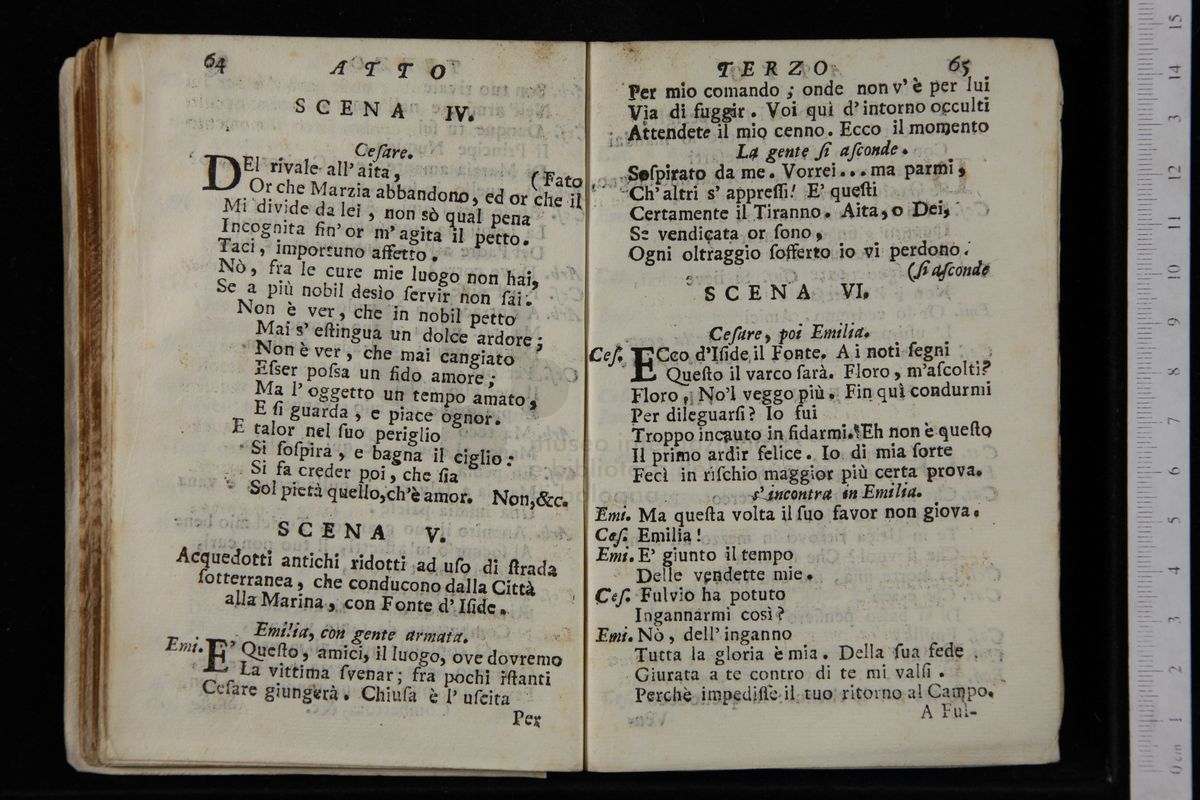 64
ATTO
SCENA IV.
Ceſare.
DEl rivale all' aita,
(Fato
Or che Marzia abbandono, ed or che il
Mi divide da lei, non sò qual pena
Incognita fin' or m' agita il petto.
Taci, importuno affetto.
Nò, fra le cure mie luogo non hai,
Se a più nobil desìo ſervir non ſai.
Non è ver, che in nobil petto
Mai s' eſtingua un dolce ardore;
Non è ver, che mai cangiato
Eſser poſsa un fido amore;
Ma l' oggetto un tempo amato,
E ſi guarda, e piace ognor.
E talor nel ſuo periglio
Si ſoſpira, e bagna il ciglio:
Si fa creder poi, che ſia
Sol pietà quello, ch'è amor. Non,&c.
SCENA V.
Acquedotti antichi ridotti ad uſo di ſtrada
ſotterranea, che conducono dalla Città
alla Marina, con Fonte d' Iſide.
Emilia, con gente armata.
Emi. E' Queſto, amici, il luogo, ove dovremo
La vittima ſvenar; fra pochi iſtanti
Ceſare giungerà. Chiuſa è l' uſcita
Per
TERZO
65
Per mio comando; onde non v' è per lui
Via di fuggir. Voi quì d' intorno occulti
Attendete il mio cenno. Ecco il momento
La gente ſi aſconde.
Soſpirato da me. Vorrei... ma parmi,
Ch' altri s' appreſſi! E' queſti
Certamente il Tiranno. Aita, o Dei,
Se vendicata or ſono,
Ogni oltraggio ſofferto io vi perdono.
(ſi aſconde
SCENA VI.
Ceſare, poi Emilia.
Ceſ. ECco d'Iſide il Fonte. A i noti ſegni
Queſto il varco ſarà. Floro, m'aſcolti?
Floro, No'l veggo più. Fin quì condurmi
Per dileguarſi? Io fui
Troppo incauto in fidarmi. Eh non è queſto
Il primo ardir felice. Io di mia ſorte
Fecì in riſchio maggior più certa prova.
s'incontra in Emilia.
Emi. Ma queſta volta il ſuo favor non giova.
Ceſ. Emilia!
Emi. E' giunto il tempo
Delle vendette mie.
Ceſ. Fulvio ha potuto
Ingannarmi così?
Emi. Nò, dell' inganno
Tutta la gloria è mia. Della ſua fede
Giurata a te contro di te mi valſi.
Perchè impediſſe il tuo ritorno al Campo.
A Ful-